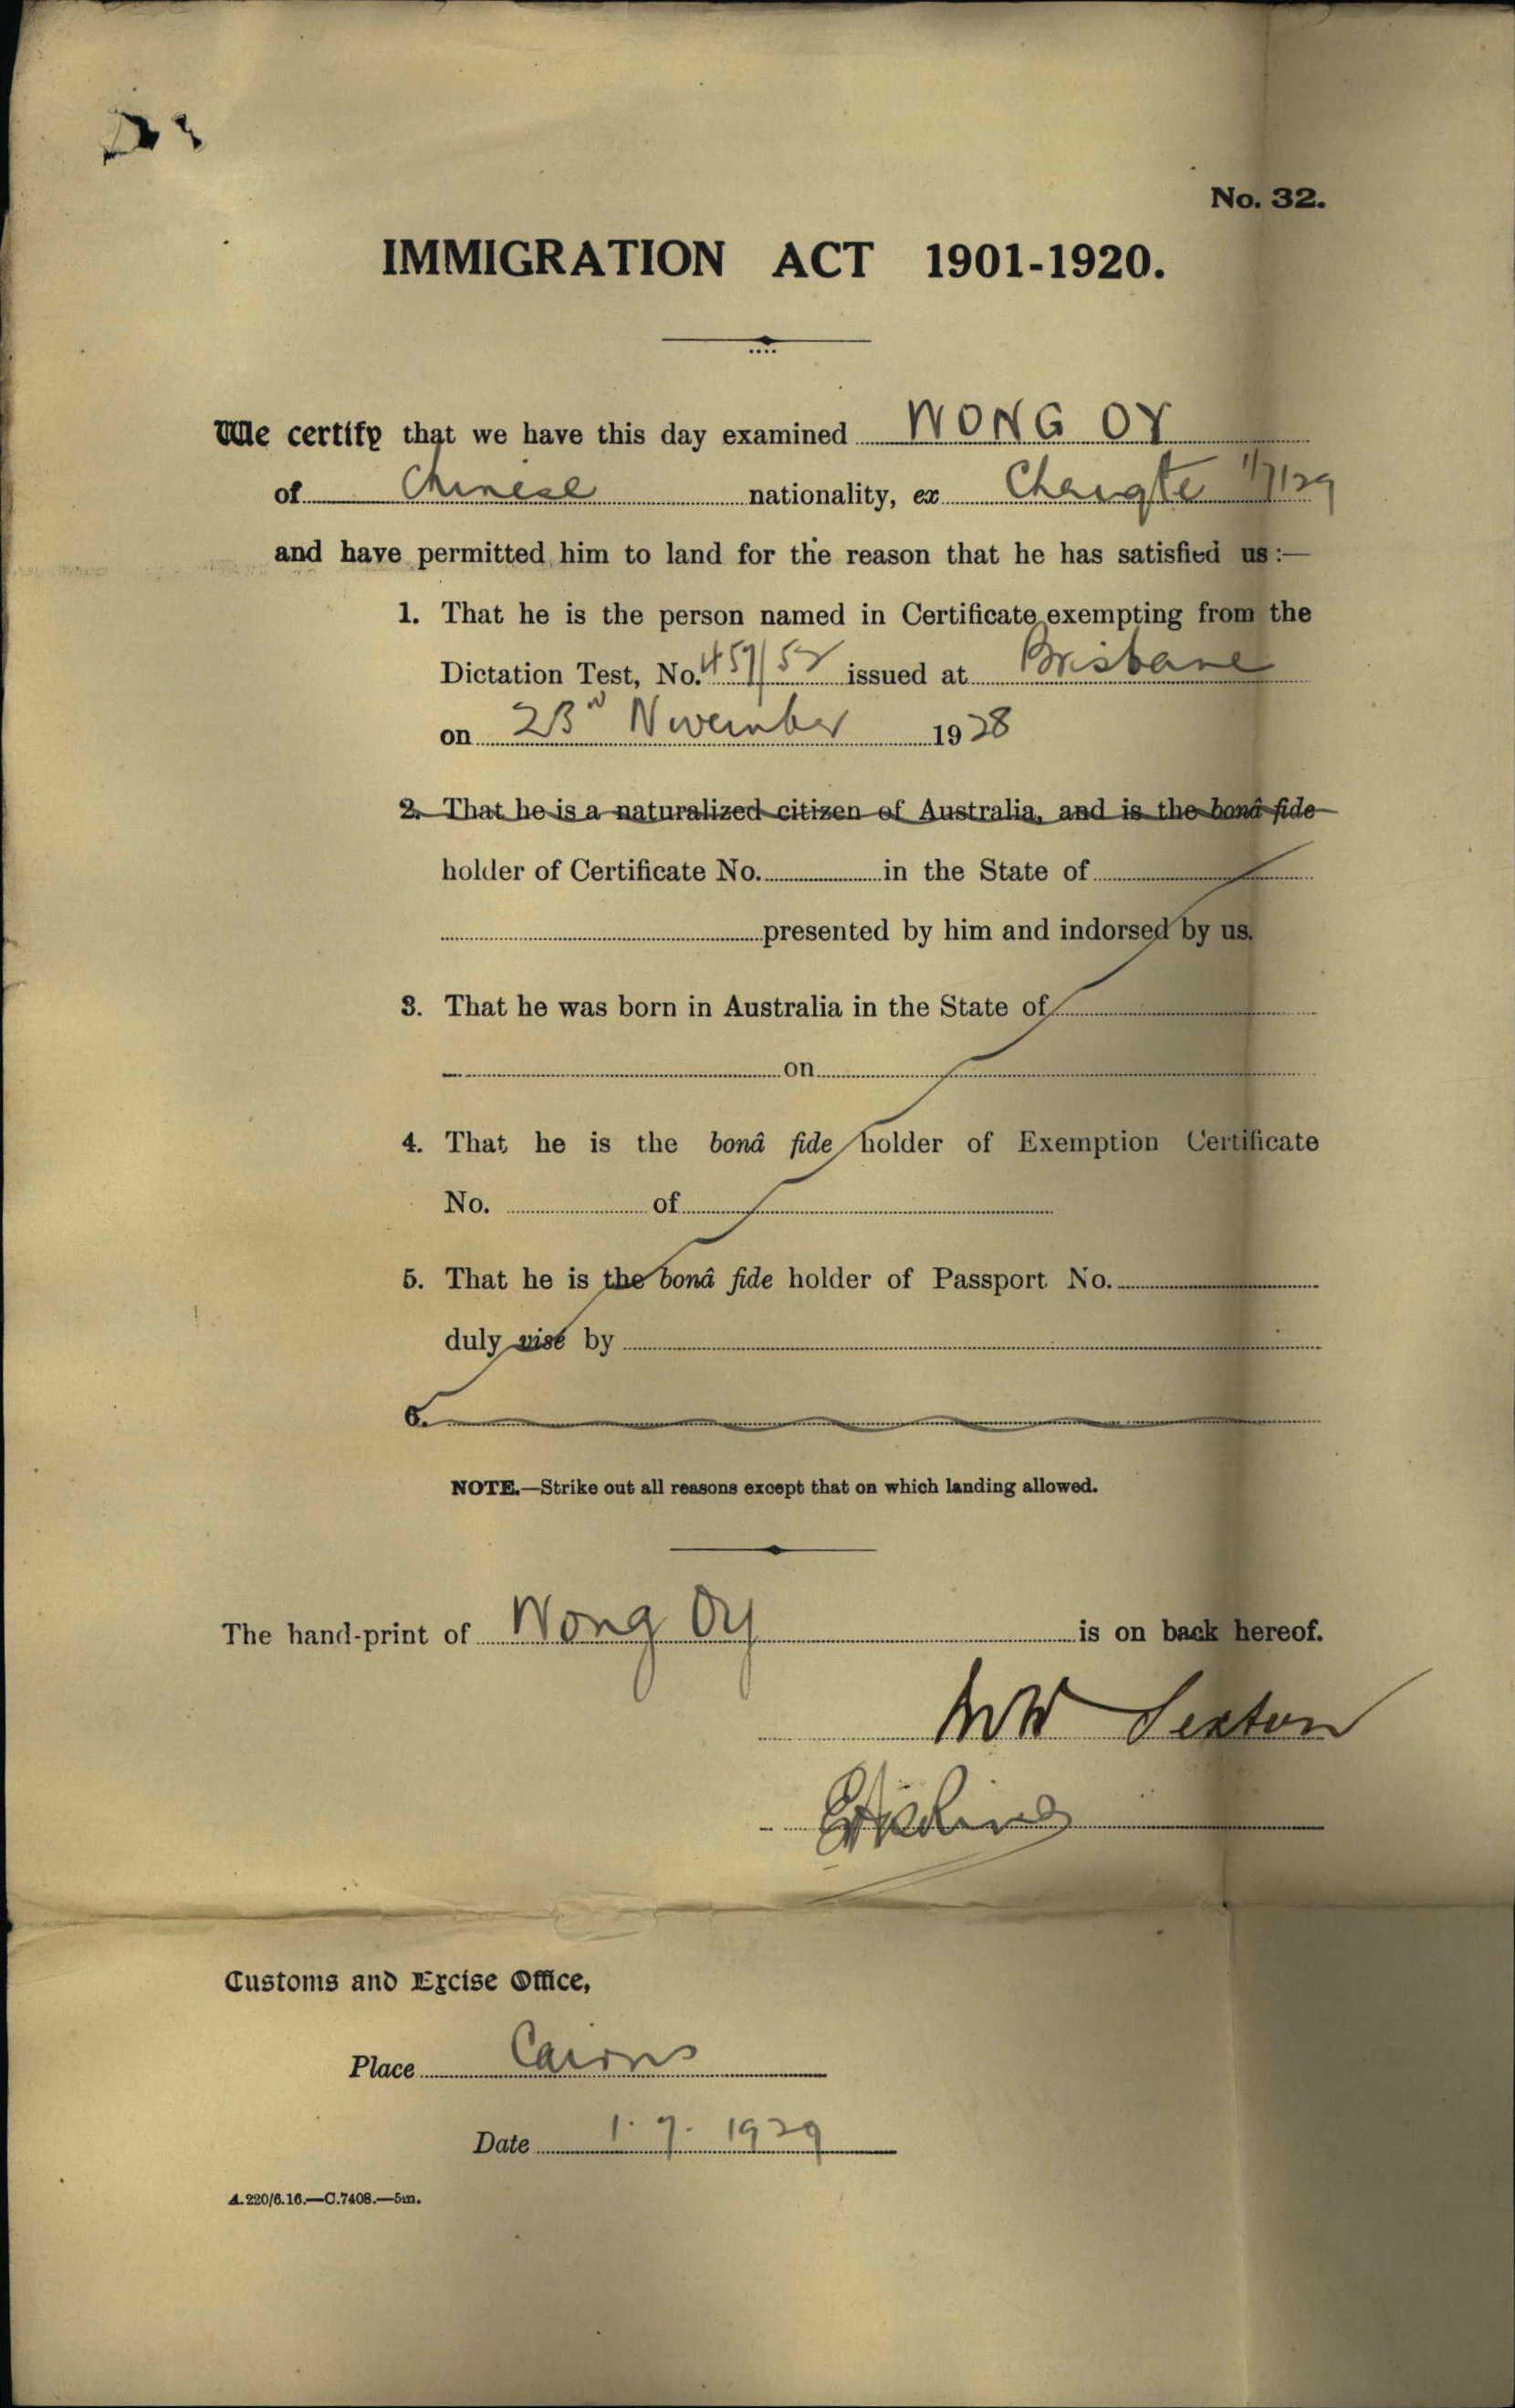 No. 32.
IMMIGRATION ACT 1901-1920.
We certify that we have this day examined WONG OY
of Chinese nationality, ex Changte 1/7/29
and have permitted him to land for the reason that he has satisfied us:—
1. That he is the person named in Certificate exempting from the
Dictation Test, No. 457/52 issued at Brisbane
on 23rd November 1928
2. That he is a naturalized citizen of Australia, and is the bonâ fide
holder of Certificate No. in the State of
presented by him and indorsed by us.
3. That he was born in Australia in the State of
on
4. That he is the bonâ fide holder of Exemption Certificate
No. of
5. That he is the bonâ fide holder of Passport No.
duly visé by
6.
NOTE.—Strike out all reasons except that on which landing allowed.
The hand-print of Wong Oy is on back hereof.
Sexton
Customs and Excise Office,
Place Cairns
Date 1.7.1929
A.220/6.16.—C.7408.—5m.